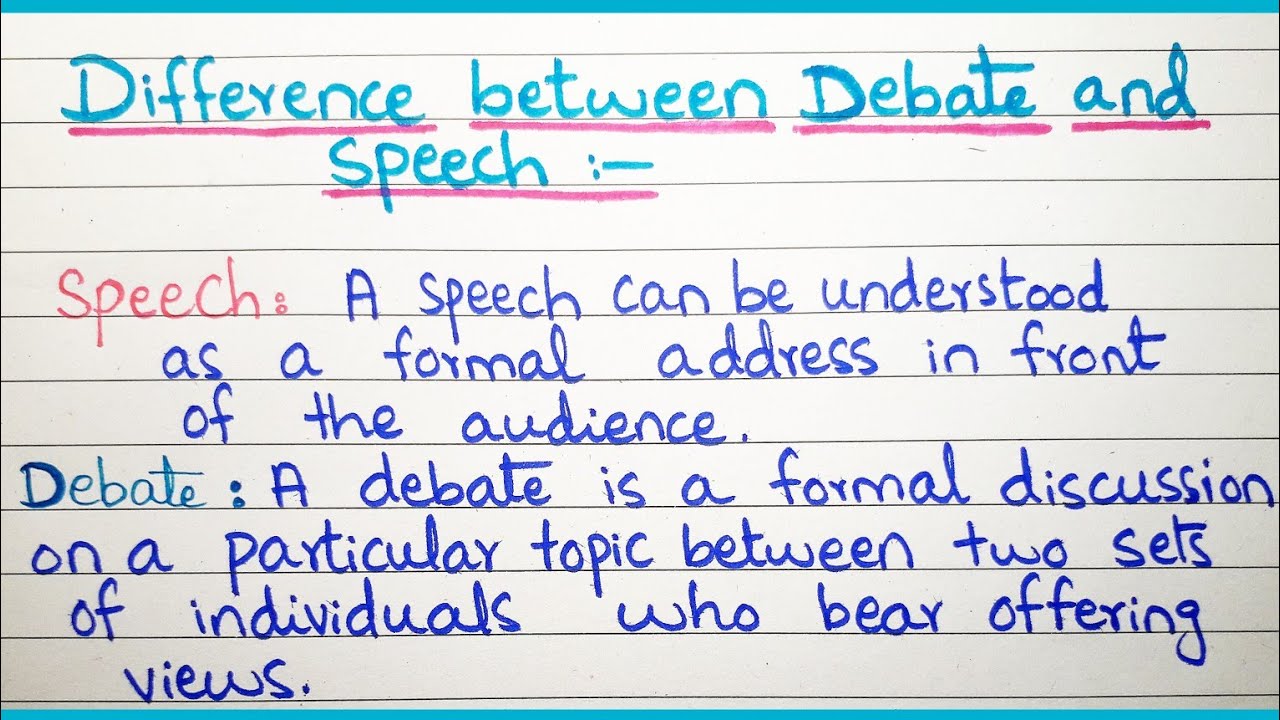 Difference between Debate and
Speech :-
Speech: A speech can be understood
as a formal address in front
of the audience.
Debate: A debate is a formal discussion
on a particular topic between two sets
of individuals who bear offering
views.